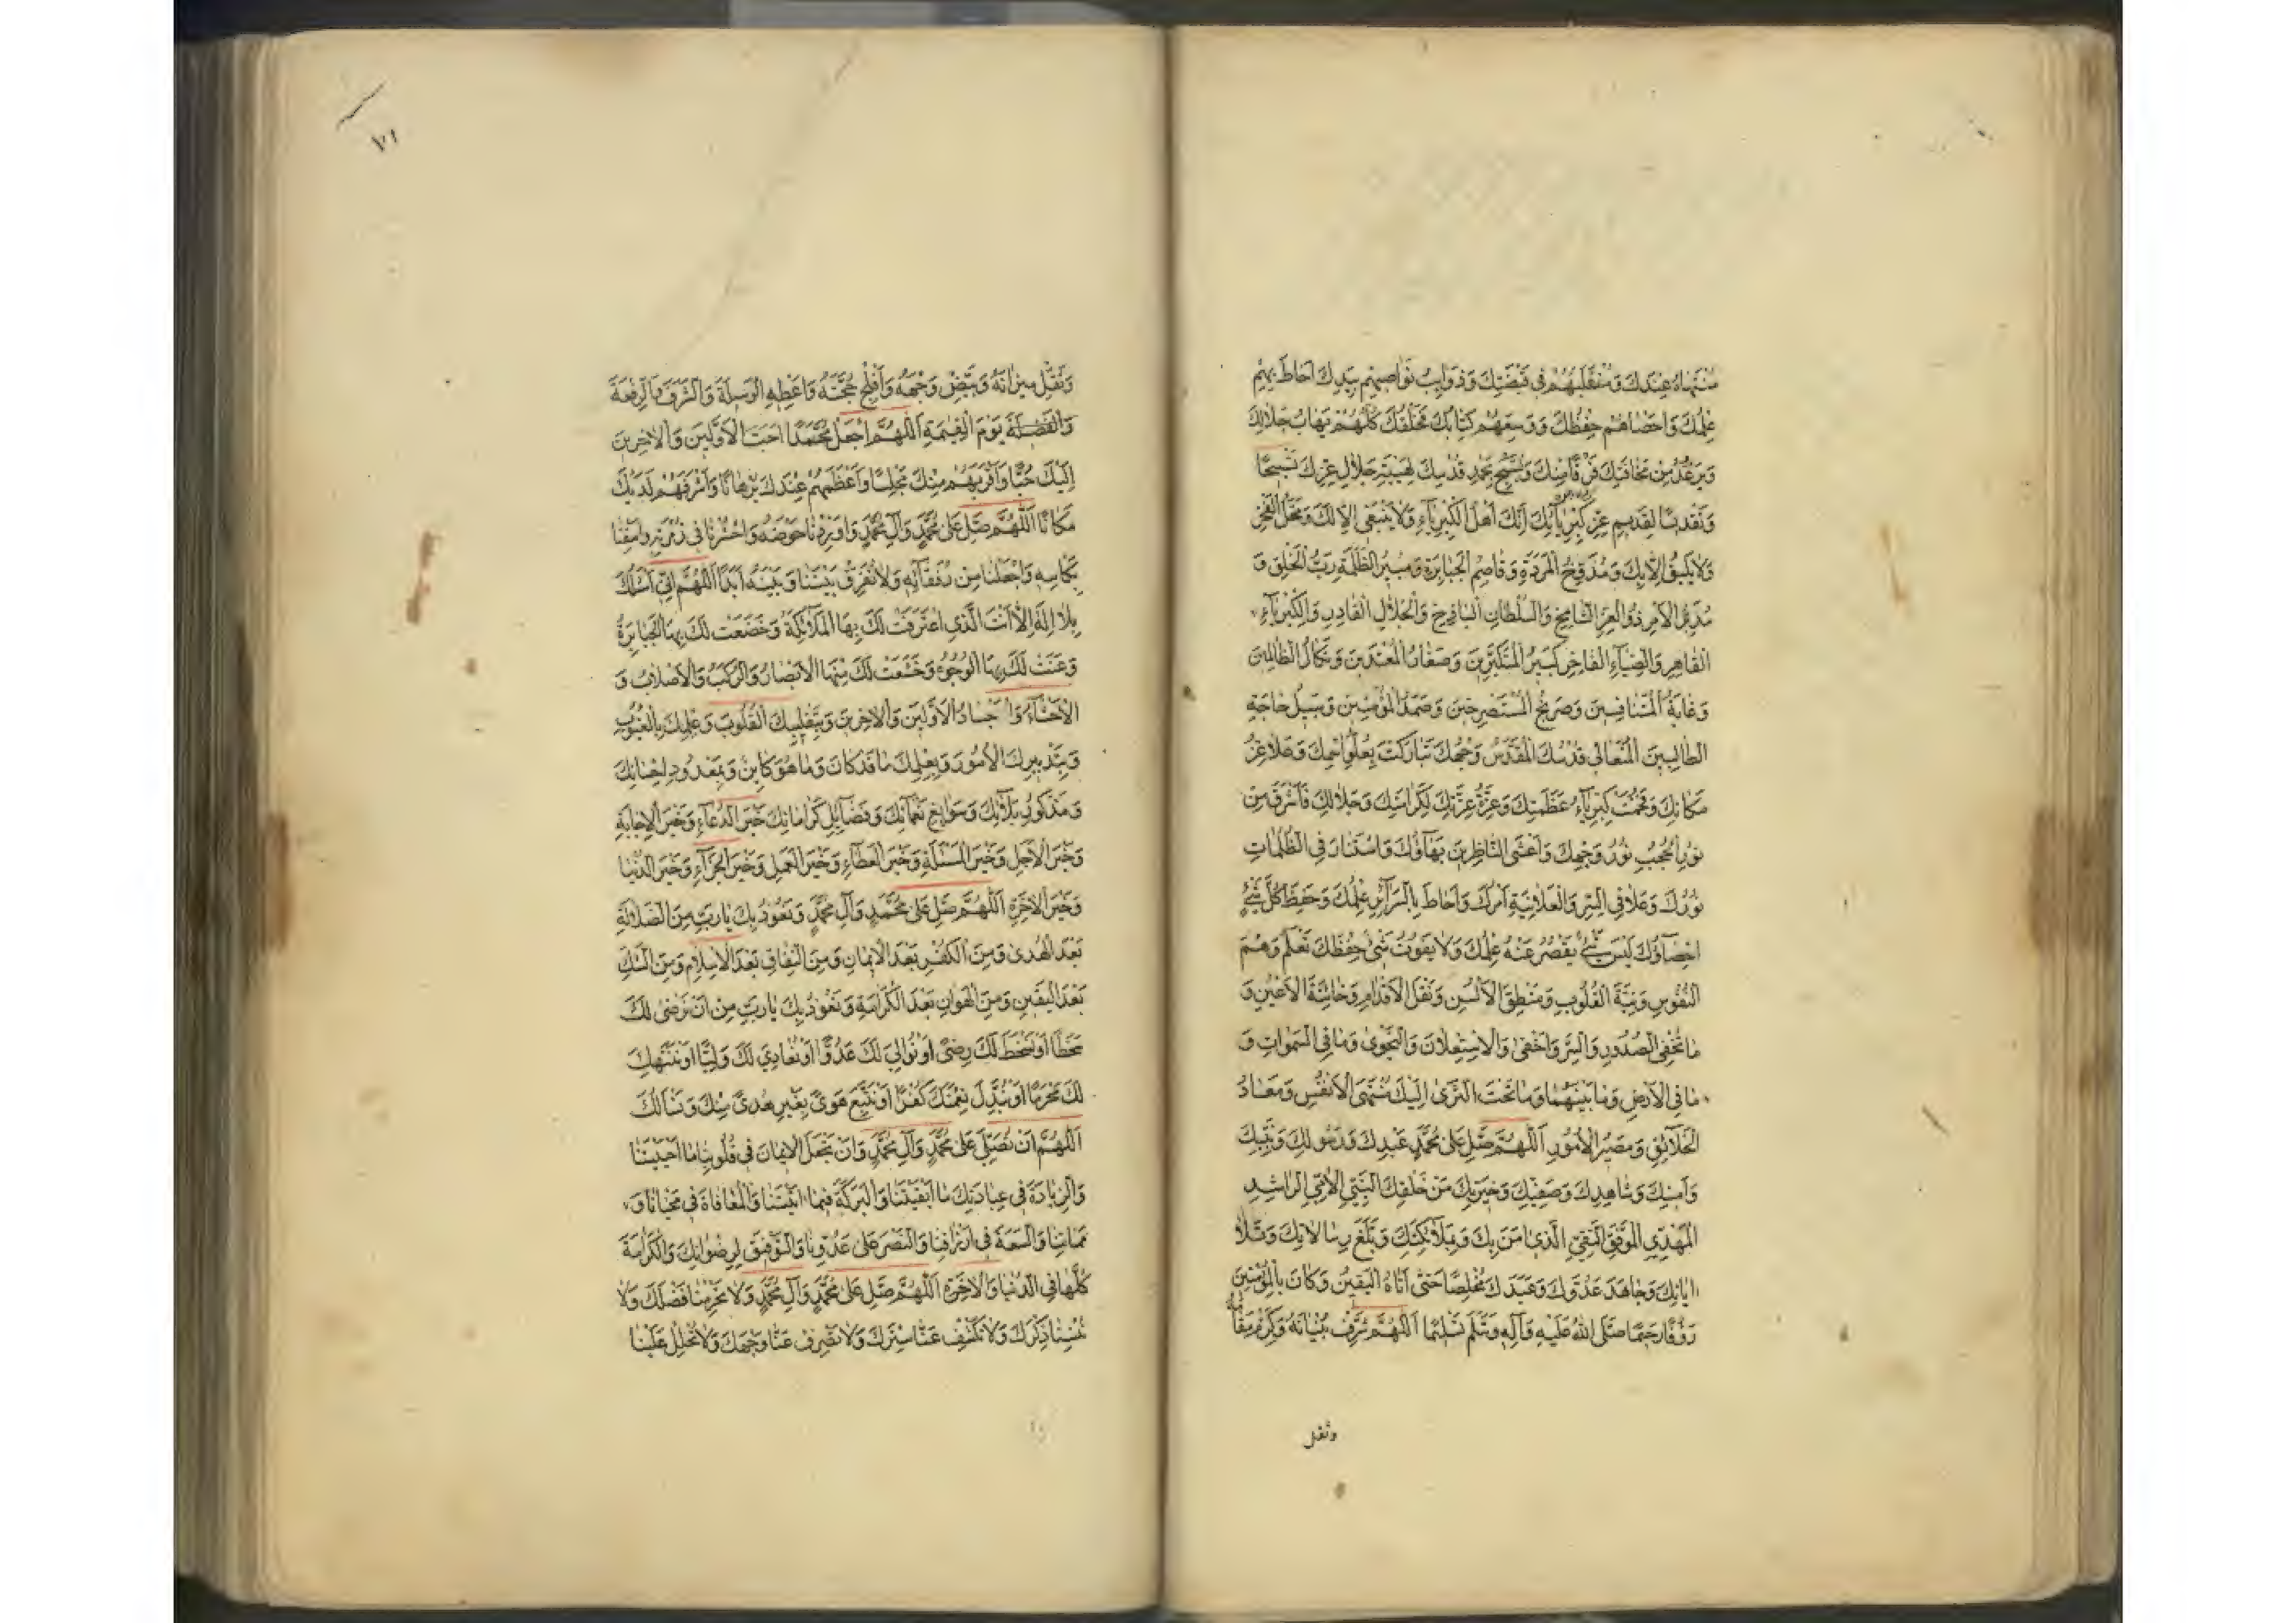 مُنْتَهَاهُ عِنْدَكَ وَمُنْقَلَبُهُمْ فِي قَبْضَتِكَ وَذَوَائِبُ نَوَاصِيهِمْ بِيَدِكَ اَحَاطَ بِهِمْ
عِلْمُكَ وَاَحْصَاهُمْ حِفْظُكَ وَوَسِعَهُمْ كِتَابُكَ فَخَلْقُكَ كُلُّهُمْ يَهَابُ جَلَالَكَ
وَيَرْعُدُ مِنْ مَخَافَتِكَ فَرَقًا مِنْكَ وَيُسَبِّحُ بِحَمْدِ قُدْسِكَ لِهَيْبَةِ جَلَالِ عِزِّكَ تَسْبِيحًا
وَتَقْدِيسًا لِقَدِيمِ عِزِّ كِبْرِيَائِكَ اِنَّكَ اَهْلُ الْكِبْرِيَاءِ وَلَا يَنْبَغِي اِلَّا لَكَ وَمَحَلُّ الْفَخْرِ
وَلَا يَلِيقُ اِلَّا بِكَ وَمُدَوِّخُ الْمَرَدَةِ وَقَاصِمُ الْجَبَابِرَةِ وَمُبِيرُ الظَّلَمَةِ رَبُّ الْخَلْقِ وَ
مُدَبِّرُ الْاَمْرِ ذُو الْعِزِّ الشَّامِخِ وَالسُّلْطَانِ الْبَاذِخِ وَالْجَلَالِ الْقَادِرِ وَالْكِبْرِيَاءِ
الْقَاهِرِ وَالضِّيَاءِ الْفَاخِرِ كَبِيرُ الْمُتَكَبِّرِينَ وَصَغَارُ الْمُعْتَدِينَ وَنَكَالُ الظَّالِمِينَ
وَغَايَةُ الْمُتَنَافِسِينَ وَصَرِيخُ الْمُسْتَصْرِخِينَ وَصَمَدُ الْمُؤْمِنِينَ وَسَبِيلُ حَاجَةِ
الطَّالِبِينَ الْمُتَعَالِي قُدْسُكَ الْمُقَدَّسُ وَجْهُكَ تَبَارَكْتَ بِعُلُوِّ اسْمِكَ وَعَلَا عِزُّ
مَكَانِكَ وَفَخُمَتْ كِبْرِيَاءُ عَظَمَتِكَ وَعِزَّةُ عِزَّتِكَ لِكَرَامَتِكَ وَجَلَالِكَ فَاَشْرَقَ مِنْ
نُورِ الْحُجُبِ نُورُ وَجْهِكَ وَاَغْشَى النَّاظِرِينَ بَهَاؤُكَ وَاسْتَنَارَ فِي الظُّلُمَاتِ
نُورُكَ وَعَلَا فِي السِّرِّ وَالْعَلَانِيَةِ اَمْرُكَ وَاَحَاطَ بِالسَّرَائِرِ عِلْمُكَ وَحَفِظَ كُلَّ شَيْءٍ
اِحْصَاؤُكَ لَيْسَ شَيْءٌ يَقْصُرُ عَنْهُ عِلْمُكَ وَلَا يَفُوتُ شَيْءٌ حِفْظَكَ تَعْلَمُ وَهْمَ
النُّفُوسِ وَنِيَّةَ الْقُلُوبِ وَمَنْطِقَ الْاَلْسُنِ وَنَقْلَ الْاَقْدَامِ وَخَائِنَةَ الْاَعْيُنِ وَ
مَا تُخْفِي الصُّدُورِ وَالسِّرَّ وَاَخْفَى وَالْاِسْتِعْلَانَ وَالنَّجْوَى وَمَا فِي السَّمٰوَاتِ وَ
مَا فِي الْاَرْضِ وَمَا بَيْنَهُمَا وَمَا تَحْتَ الثَّرَى اِلَيْكَ مُنْتَهَى الْاَنْفُسِ وَمَعَادُ
الْخَلَائِقِ وَمَصِيرُ الْاُمُورِ اَللّٰهُمَّ صَلِّ عَلَى مُحَمَّدٍ عَبْدِكَ وَرَسُولِكَ وَنَبِيِّكَ
وَاَمِينِكَ وَشَاهِدِكَ وَصَفِيِّكَ وَخِيَرَتِكَ مِنْ خَلْقِكَ النَّبِيِّ الْاُمِّيِّ الرَّاشِدِ
الْمَهْدِيِّ الْمُوَفَّقِ التَّقِيِّ الَّذِي اٰمَنَ بِكَ وَبِمَلَائِكَتِكَ وَبَلَّغَ رِسَالَاتِكَ وَتَلَا
اٰيَاتِكَ وَجَاهَدَ عَدُوَّكَ وَعَبَدَكَ مُخْلِصًا حَتّٰى اَتَاهُ الْيَقِينُ وَكَانَ بِالْمُؤْمِنِينَ
رَؤُفًا رَحِيمًا صَلَّى اللّٰهُ عَلَيْهِ وَاٰلِهِ وَسَلَّمَ تَسْلِيمًا اَللّٰهُمَّ شَرِّفْ بُنْيَانَهُ وَكَرِّمْ مَقَامَهُ
وثقل
١٧١
وَثَقِّلْ مِيزَانَهُ وَبَيِّضْ وَجْهَهُ وَاَفْلِجْ حُجَّتَهُ وَاَعْطِهِ الْوَسِيلَةَ وَالشَّرَفَ وَالرِّفْعَةَ
وَالْفَضِيلَةَ يَوْمَ الْقِيٰمَةِ اَللّٰهُمَّ اجْعَلْ مُحَمَّدًا اَحَبَّ الْاَوَّلِينَ وَالْاٰخِرِينَ
اِلَيْكَ حُبًّا وَاَقْرَبَهُمْ مِنْكَ مَجْلِسًا وَاَعْظَمَهُمْ عِنْدَكَ بُرْهَانًا وَاَشْرَفَهُمْ لَدَيْكَ
مَكَانًا اَللّٰهُمَّ صَلِّ عَلَى مُحَمَّدٍ وَاٰلِ مُحَمَّدٍ وَاَوْرِدْنَا حَوْضَهُ وَاحْشُرْنَا فِي زُمْرَتِهِ وَاسْقِنَا
بِكَاْسِهِ وَاجْعَلْنَا مِنْ رُفَقَائِهِ وَلَا تُفَرِّقْ بَيْنَنَا وَبَيْنَهُ اَبَدًا اَللّٰهُمَّ اِنِّي اَسْئَلُكَ
بِلَا اِلٰهَ اِلَّا اَنْتَ الَّذِي اعْتَرَفَتْ لَكَ بِهَا الْمَلَائِكَةُ وَخَضَعَتْ لَكَ بِهَا الْجَبَابِرَةُ
وَعَنَتْ لَكَ بِهَا الْوُجُوهُ وَخَشَعَتْ لَكَ مِنْهَا الْاَبْصَارُ وَالرُّكَبُ وَالْاَصْلَابُ وَ
الْاَحْشَاءُ وَالْاَجْسَادُ الْاَوَّلِينَ وَالْاٰخِرِينَ وَبِتَقْلِيبِكَ الْقُلُوبَ وَعِلْمِكَ بِالْغُيُوبِ
وَبِتَدْبِيرِكَ الْاُمُورَ وَبِعِلْمِكَ مَا قَدْ كَانَ وَمَا هُوَ كَائِنٌ وَبِمَعْدُودِ اِحْسَانِكَ
وَمَذْكُورِ بَلَائِكَ وَسَوَابِغِ نَعْمَائِكَ وَفَضَائِلِ كَرَامَاتِكَ خَيْرَ الدُّعَاءِ وَخَيْرَ الْاِجَابَةِ
وَخَيْرَ الْاَجَلِ وَخَيْرَ الْمَسْئَلَةِ وَخَيْرَ الْعَطَاءِ وَخَيْرَ الْعَمَلِ وَخَيْرَ الْجَزَاءِ وَخَيْرَ الدُّنْيَا
وَخَيْرَ الْاٰخِرَةِ اَللّٰهُمَّ صَلِّ عَلَى مُحَمَّدٍ وَاٰلِ مُحَمَّدٍ وَنَعُوذُ بِكَ يَا رَبِّ مِنَ الضَّلَالَةِ
بَعْدَ الْهُدَى وَمِنَ الْكُفْرِ بَعْدَ الْاِيمَانِ وَمِنَ النِّفَاقِ بَعْدَ الْاِسْلَامِ وَمِنَ الشَّكِّ
بَعْدَ الْيَقِينِ وَمِنَ الْهَوَانِ بَعْدَ الْكَرَامَةِ وَنَعُوذُ بِكَ يَا رَبِّ مِنْ اَنْ نَرْضَى لَكَ
سَخَطًا اَوْ نُسْخِطَ لَكَ رِضًى اَوْ نُوَالِيَ لَكَ عَدُوًّا اَوْ نُعَادِيَ لَكَ وَلِيًّا اَوْ نَنْتَهِكَ
لَكَ مُحَرَّمًا اَوْ نُبَدِّلَ نِعْمَتَكَ كُفْرًا اَوْ نَتَّبِعَ هَوًى بِغَيْرِ هُدًى مِنْكَ وَنَسْاَلُكَ
اَللّٰهُمَّ اَنْ تُصَلِّيَ عَلَى مُحَمَّدٍ وَاٰلِ مُحَمَّدٍ وَاَنْ تَجْعَلَ الْاِيمَانَ فِي قُلُوبِنَا مَا اَحْيَيْتَنَا
وَالزِّيَادَةَ فِي عِبَادَتِكَ مَا اَبْقَيْتَنَا وَالْبَرَكَةَ فِيمَا اٰتَيْتَنَا وَالْمُعَافَاةَ فِي مَحْيَانَا وَ
مَمَاتِنَا وَالسَّعَةَ فِي اَرْزَاقِنَا وَالنَّصْرَ عَلَى عَدُوِّنَا وَالتَّوْفِيقَ لِرِضْوَانِكَ وَالْكَرَامَةَ
كُلَّهَا فِي الدُّنْيَا وَالْاٰخِرَةِ اَللّٰهُمَّ صَلِّ عَلَى مُحَمَّدٍ وَاٰلِ مُحَمَّدٍ وَلَا تَحْرِمْنَا فَضْلَكَ وَلَا
تُنْسِنَا ذِكْرَكَ وَلَا تَكْشِفْ عَنَّا سِتْرَكَ وَلَا تَصْرِفْ عَنَّا وَجْهَكَ وَلَا تُحْلِلْ عَلَيْنَا